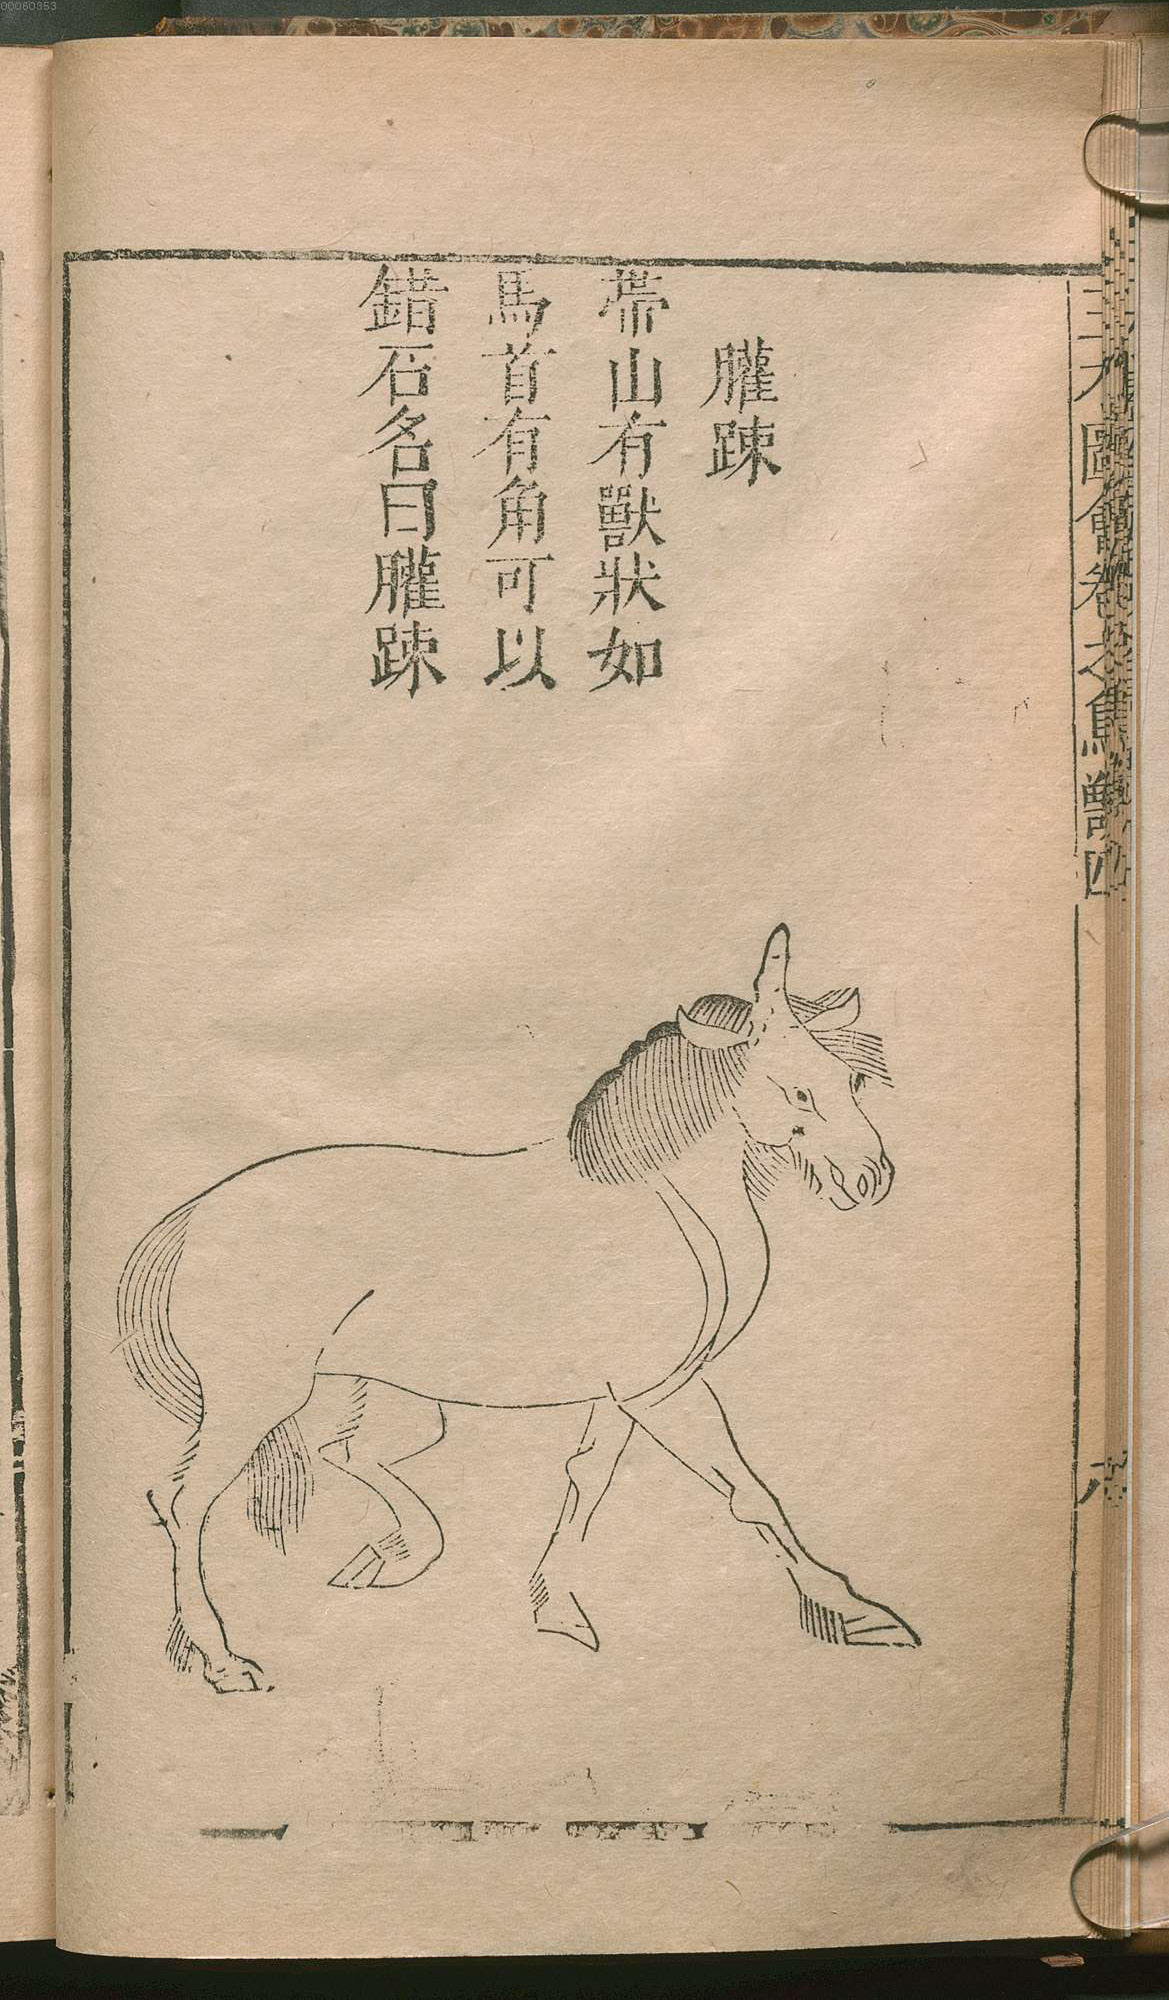 臛踈
帶山有獸狀如
馬首有角可以
錯石名曰臛踈
三才圖會卷之鳥獸四
六
00060353